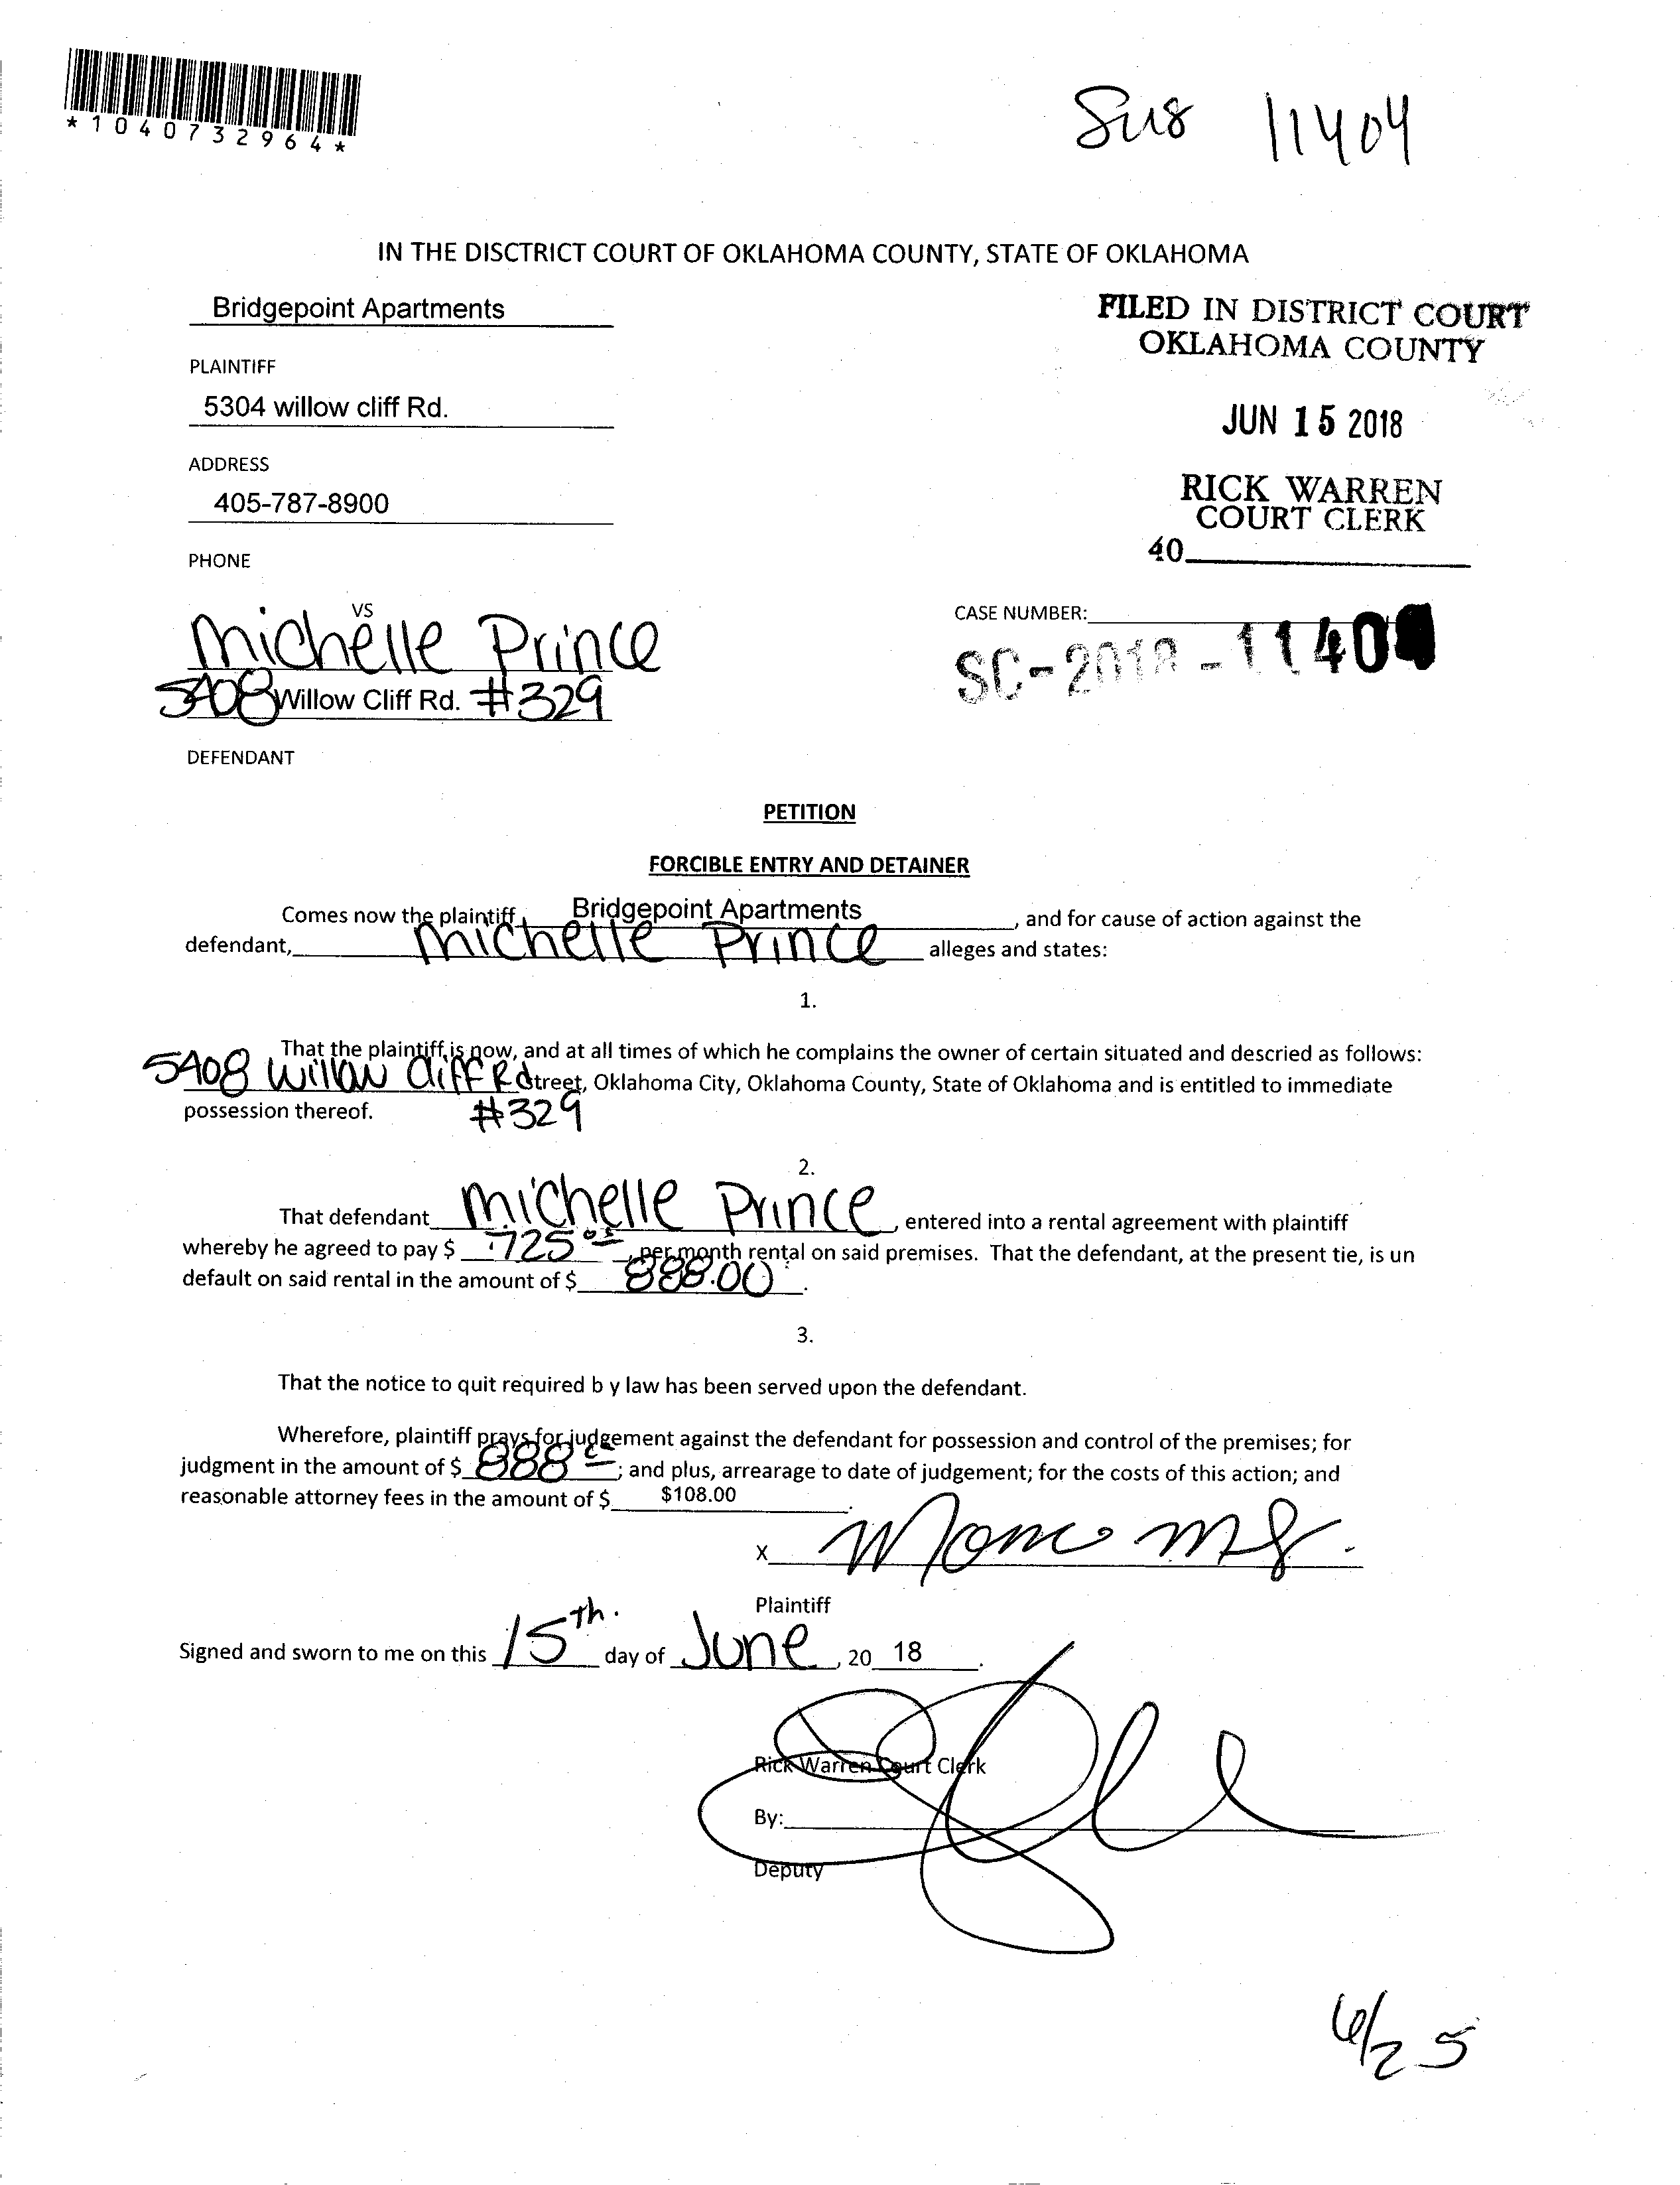 *1040732964*
Su8 11404
IN THE DISCTRICT COURT OF OKLAHOMA COUNTY, STATE OF OKLAHOMA
Bridgepoint Apartments
PLAINTIFF
5304 willow cliff Rd.
ADDRESS
405-787-8900
PHONE
FILED IN DISTRICT COURT
OKLAHOMA COUNTY
JUN 15 2018
RICK WARREN
COURT CLERK
40
VS
Michelle Prince
5408 Willow Cliff Rd. #329
DEFENDANT
CASE NUMBER:
SC-2018-1140
PETITION
FORCIBLE ENTRY AND DETAINER
Comes now the plaintiff, Bridgepoint Apartments, and for cause of action against the
defendant, Michelle Prince alleges and states:
1.
That the plaintiff is now, and at all times of which he complains the owner of certain situated and descried as follows:
5408 Willow Cliff Rd Street, Oklahoma City, Oklahoma County, State of Oklahoma and is entitled to immediate
possession thereof. #329
2.
That defendant Michelle Prince, entered into a rental agreement with plaintiff
whereby he agreed to pay $ 725, per month rental on said premises. That the defendant, at the present tie, is un
default on said rental in the amount of $ 888.00.
3.
That the notice to quit required b y law has been served upon the defendant.
Wherefore, plaintiff prays for judgement against the defendant for possession and control of the premises; for
judgment in the amount of $ 888; and plus, arrearage to date of judgement; for the costs of this action; and
reasonable attorney fees in the amount of $ $108.00.
X
Plaintiff
Signed and sworn to me on this 15th. day of June, 20 18.
Rick Warren Court Clerk
By:
Deputy
6/25